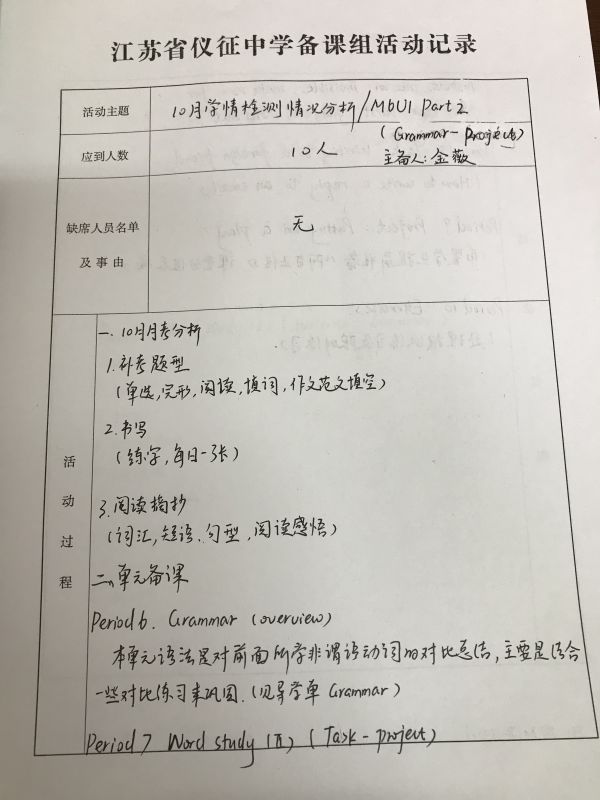 江苏省仪征中学备课组活动记录
活动主题
10月学情检测情况分析/M6U1 Part 2
(Grammar-Project)
应到人数
10人
主备人:金薇
缺席人员名单
及事由
无
活动过程
一.10月月考分析
1.补考题型
(单选,完形,阅读,填词,作文范文填空)
2.书写
(练字,每日一张)
3.阅读摘抄
(词汇,短语、句型,阅读感悟)
二、单元备课
Period 6. Grammar (overview)
本单元语法是对前面所学非谓语动词的对比总结,主要是结合
一些对比练习来巩固.(见导学单 Grammar)
Period 7 Word study (五) (Task-project)